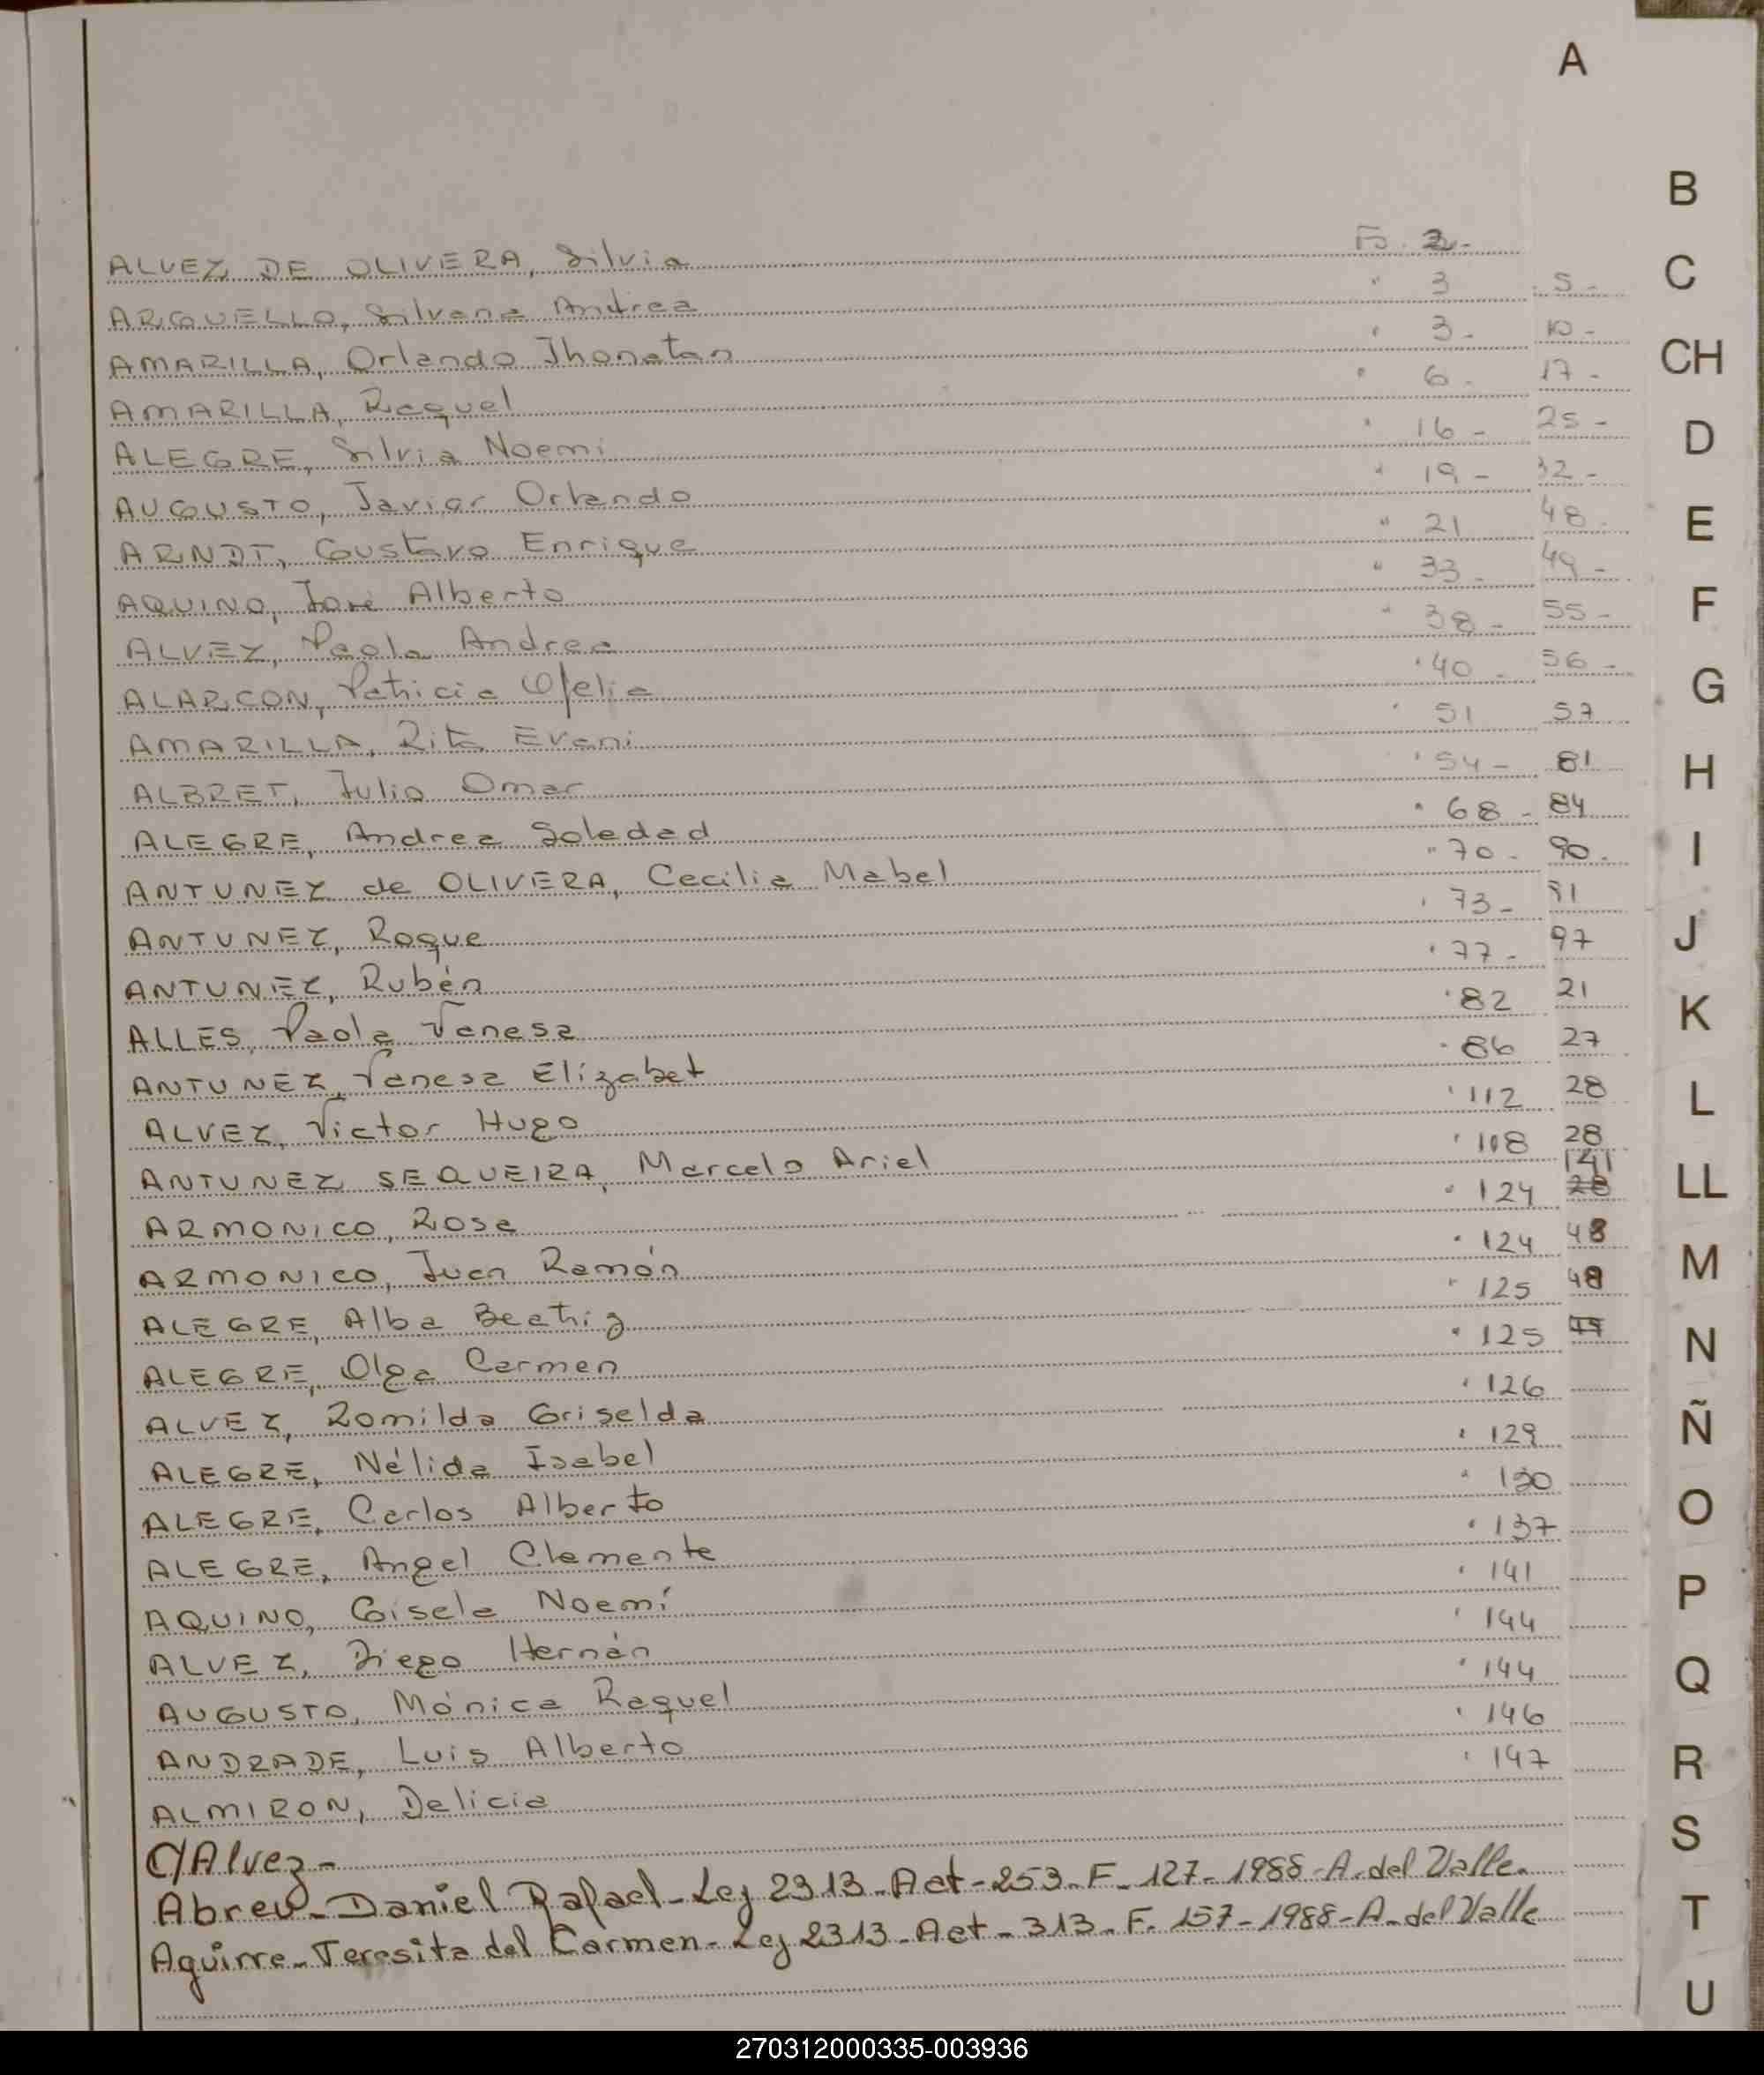 A
B
C
CH
D
E
F
G
H
I
J
K
L
LL
M
N
Ñ
O
P
Q
R
S
T
U
ALVEZ DE OLIVERA, Silvia Fº. 2-
ARGUELLO, Silvana Andrea " 3 5-
AMARILLA, Orlando Jhonatan " 3- 10-
AMARILLA, Raquel " 6- 17-
ALEGRE, Silvia Noemi " 16- 25-
AUGUSTO, Javier Orlando " 19- 32-
ARNDT, Gustavo Enrique " 21 48-
AQUINO, José Alberto " 33- 49-
ALVEZ, Paola Andrea " 38- 55-
ALARCON, Patricia Ofelia " 40- 56-
AMARILLA, Rita Evani " 51 57
ALBRET, Julio Omar " 54- 81
ALEGRE, Andrea Soledad " 68- 84
ANTUNEZ de OLIVERA, Cecilia Mabel " 70- 90-
ANTUNEZ, Roque " 73- 91
ANTUNEZ, Rubén " 77- 97
ALLES, Paola Vanesa " 82 21
ANTUNEZ, Vanesa Elizabet " 86 27
ALVEZ, Victor Hugo " 112 28
ANTUNEZ SEQUEIRA, Marcelo Ariel " 108 28
ARMONICO, Rosa " 124 141 28
ARMONICO, Juan Ramón " 124 48
ALEGRE, Alba Beatriz " 125 48
ALEGRE, Olga Carmen " 125
ALVEZ, Romilda Griselda " 126
ALEGRE, Nélida Isabel " 129
ALEGRE, Carlos Alberto " 130
ALEGRE, Angel Clemente " 137
AQUINO, Gisela Noemí " 141
ALVEZ, Diego Hernán " 144
AUGUSTO, Mónica Raquel " 144
ANDRADE, Luis Alberto " 146
ALMIRON, Delicia " 147
C/Alvez-
Abreu-Daniel Rafael-Leg 2313-Act-253-F-127-1988-A.del Valle.
Aguirre-Teresita del Carmen-Leg 2313-Act-313-F.157-1988-A-del Valle
270312000335-003936